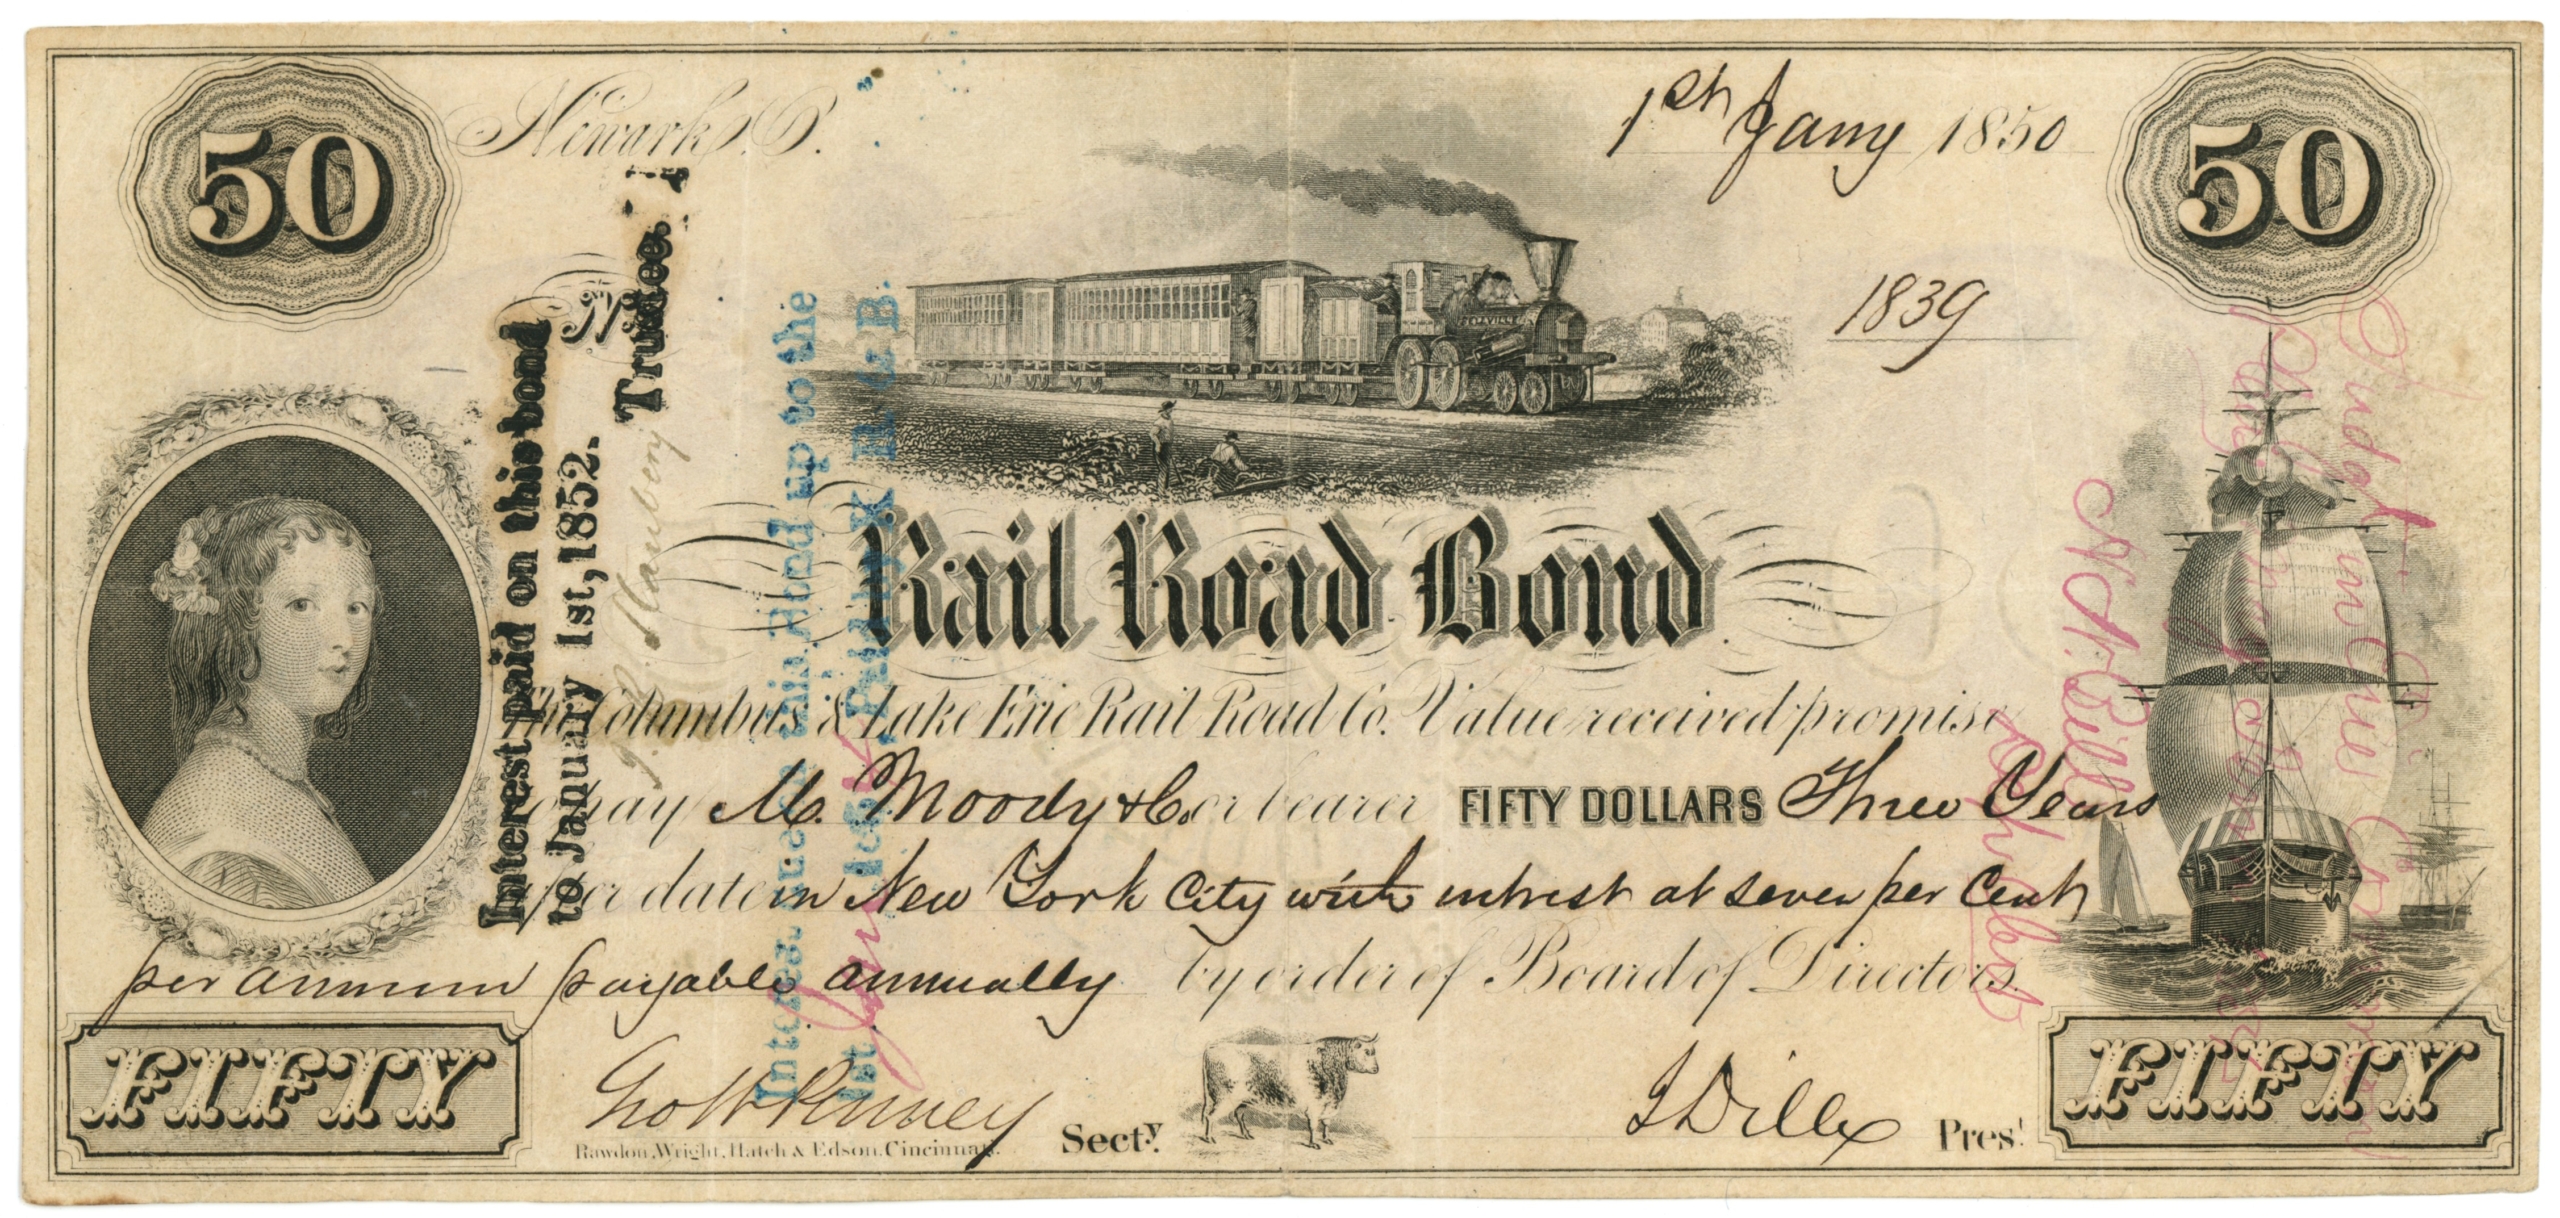 50
50
Newark, O.
1st Jany 1850
No
1839
Rail Road Bond.
The Columbus & Lake Erie Rail Road Co. Value received promise
to pay M. Moody & Co or bearer FIFTY DOLLARS Three Years
after date in New York City with intrest at seven per Cent
per annum payable annually by order of Board of Directors.
FIFTY
Secty.
Dille Prest
FIFTY
Rawdon, Wright, Hatch & Edson, Cincinnati.
Interest paid on this bond
to January 1st, 1852.
Trustee.
up to the
1st